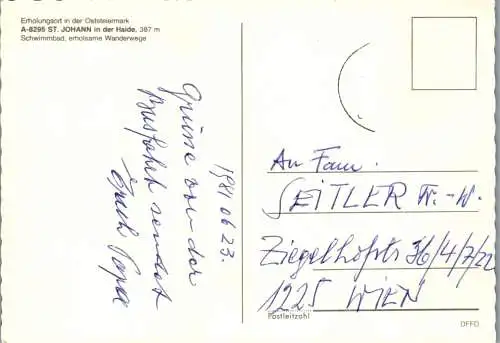 Erholungsort in der Oststeiermark
A-8295 ST. JOHANN in der Haide, 387 m
Schwimmbad, erholsame Wanderwege
1981 06 23.
Grüsse von der
Busfahrt sendet
Euch Papa
An Fam.
SEITLER W.-W.
Ziegelhofstr 36/4/7/22
1225 WIEN
Postleitzahl
DFFD